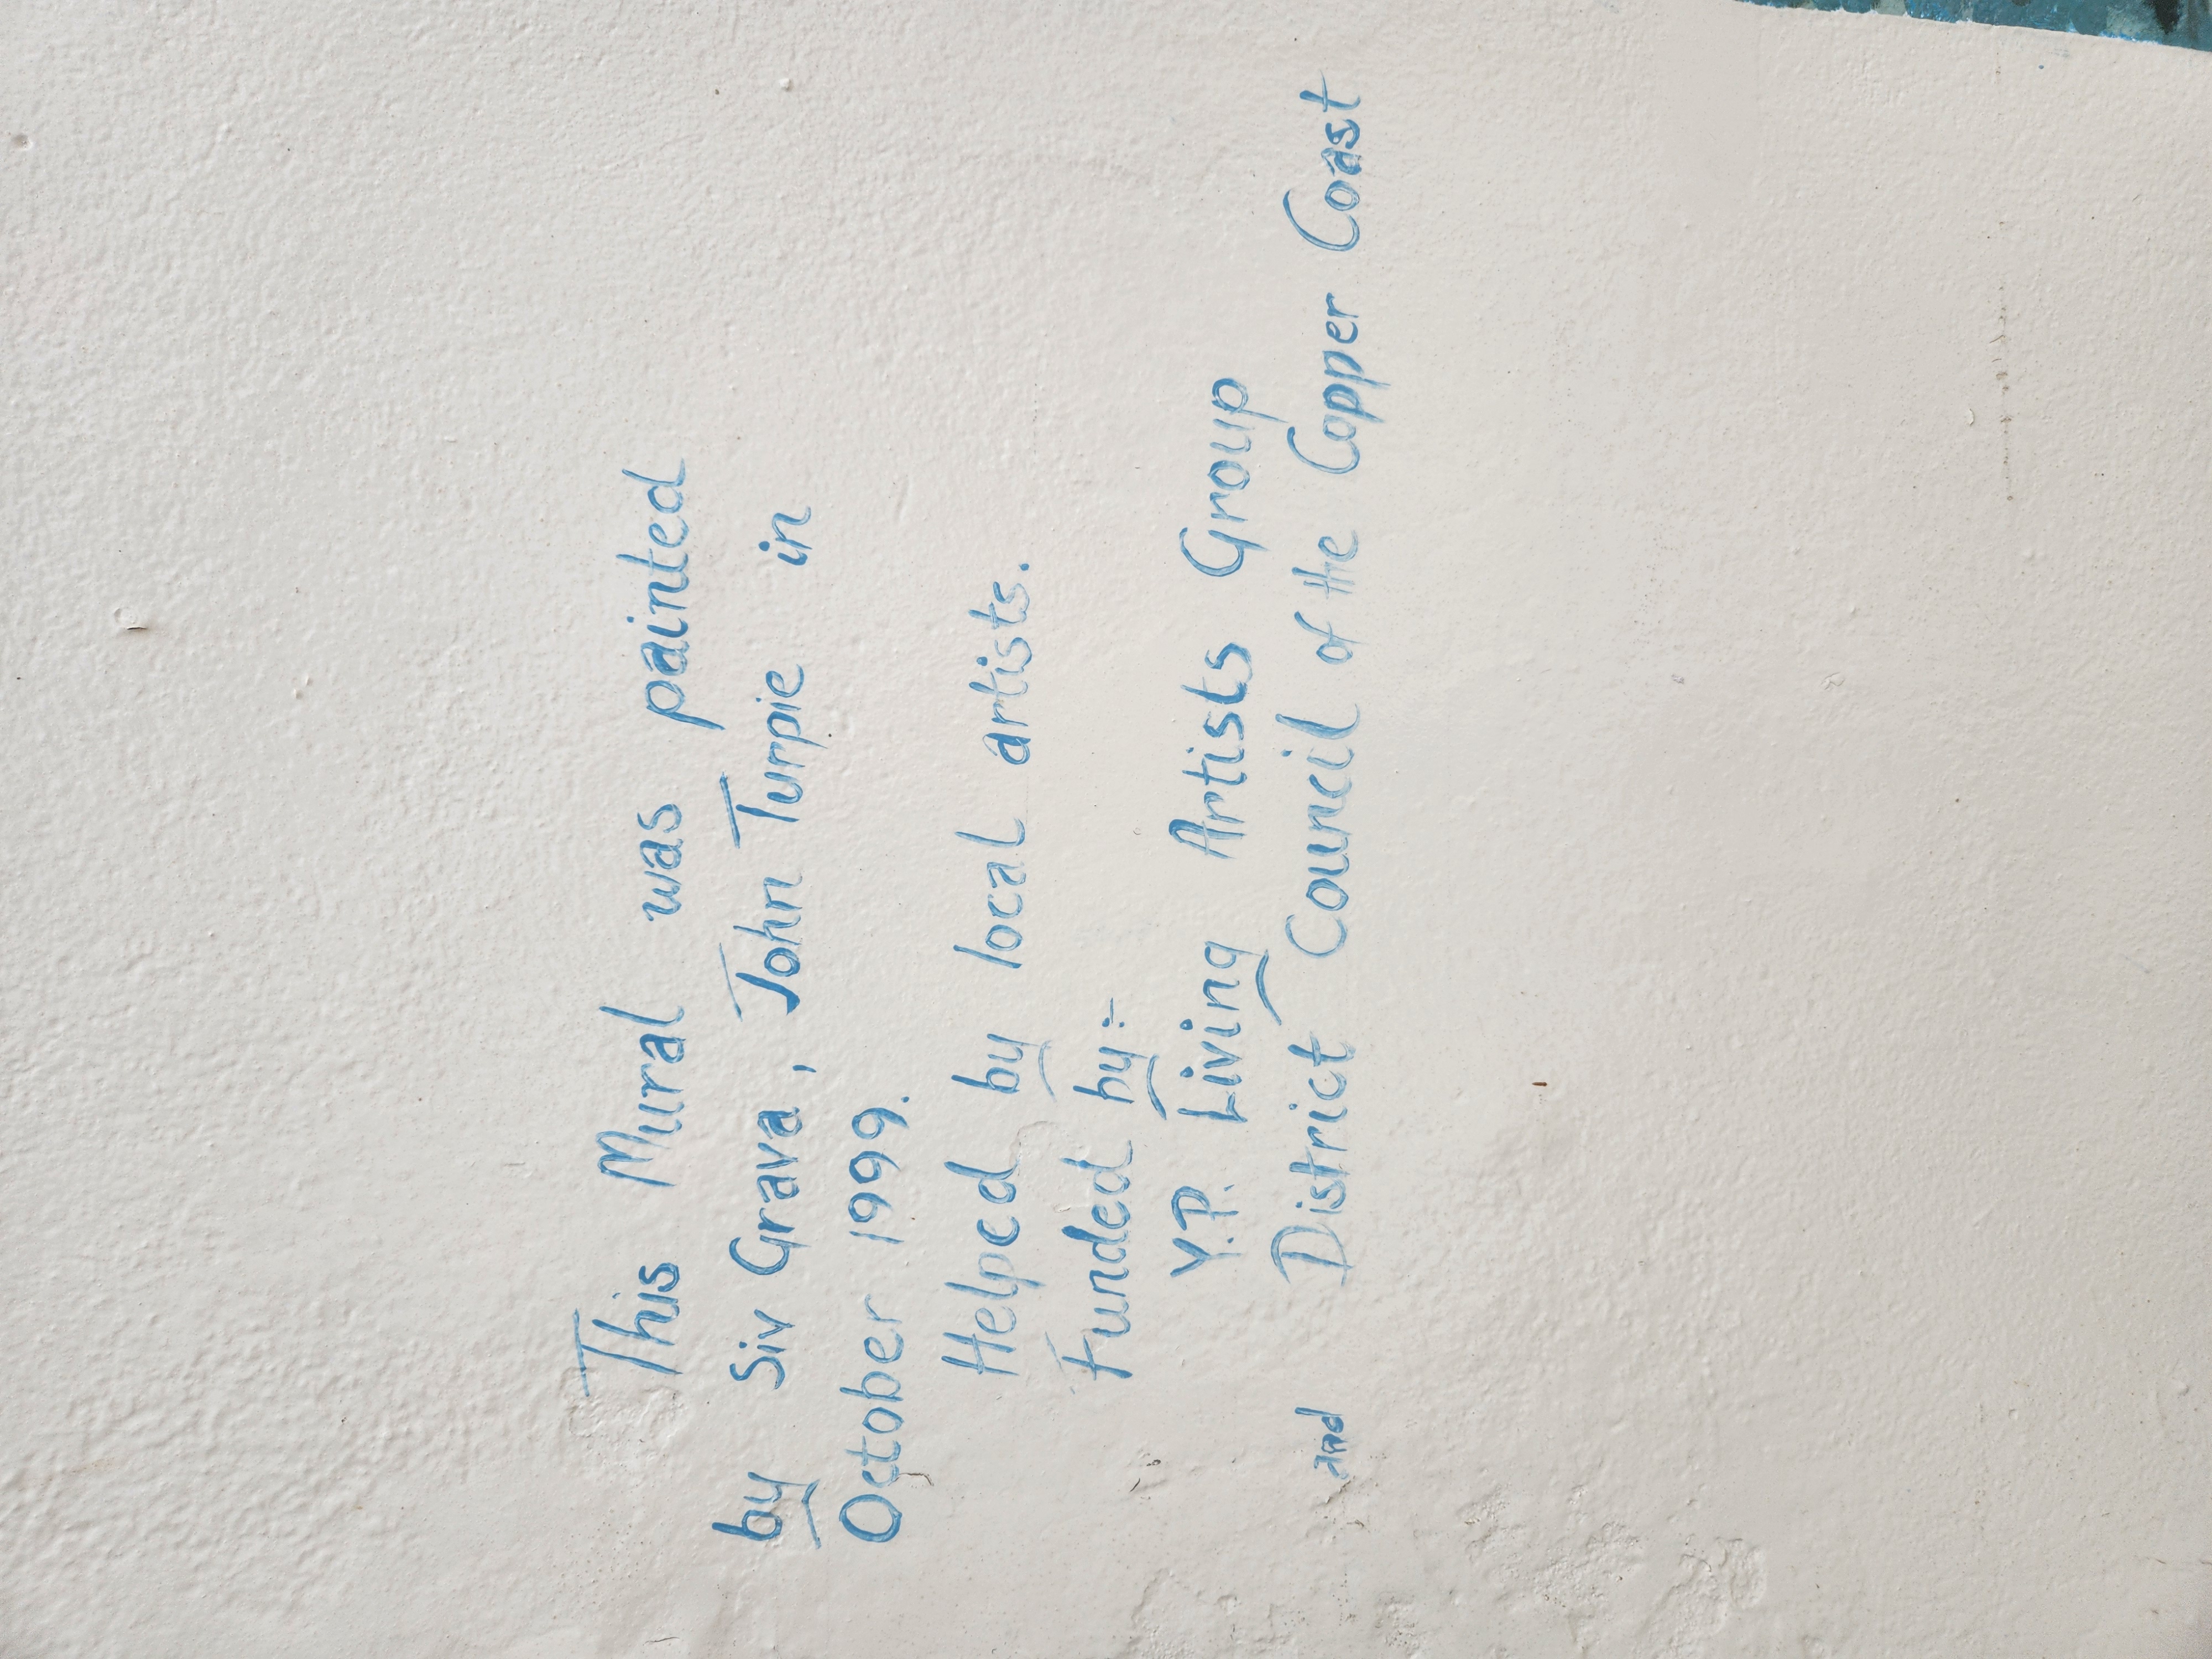 This Mural was painted
by Siv Grava, John Turpie in
October 1999.
Helped by local artists.
Funded by:-
Y.P. Living Artists Group
and District Council of the Copper Coast